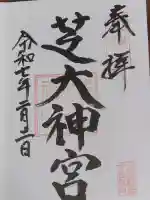 奉拝
芝大神宮
令和七年二月十二日